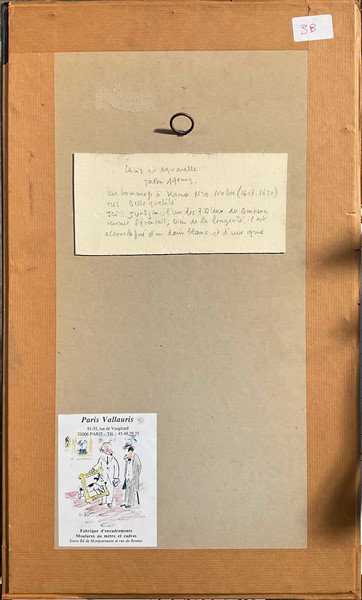 3B
Encre et Aquarelle
Japon
en hommage à Kano
très belle qualité
Ici : Jurojin, l'un des 7 Dieux du Bonheur
Dieu de la longévité, il est
accompagné d'un daim blanc et d'une grue
Paris Vallauris
91-93, rue de Vaugirard
75006 PARIS - Tél. :
Fabrique d'encadrements
Moulures au mètre et cadres
Entre Bd de Montparnasse et rue de Rennes